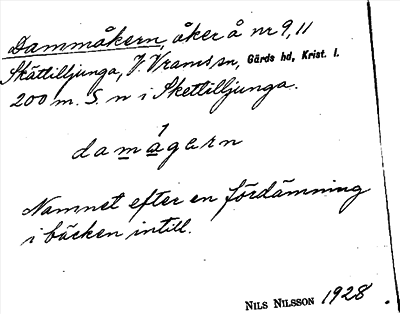 Dammåkern, åker å nr 9, 11
Skättilljunga, V. Vrams sn, Gärds hd, Krist. l.
200 m. S. n i Skettilljunga.
1
damagern
Namnet efter en fördämning
i bäcken intill.
NILS NILSSON 1928.